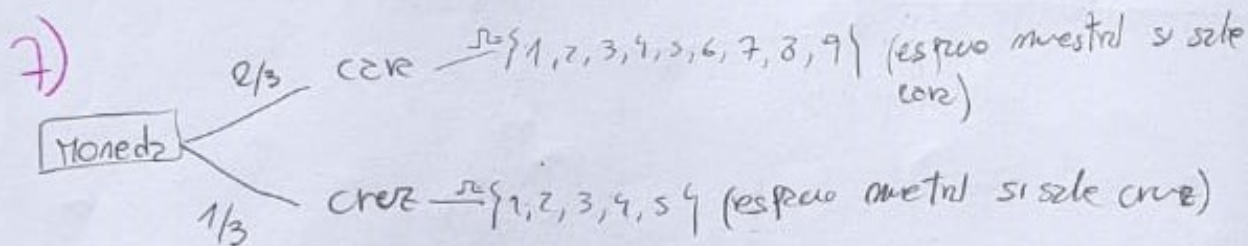 7)
2/3 cara Ω={1, 2, 3, 4, 5, 6, 7, 8, 9} (espacio muestral si sale cara)
Moneda
1/3 cruz Ω={1, 2, 3, 4, 5} (espacio muestral si sale cruz)